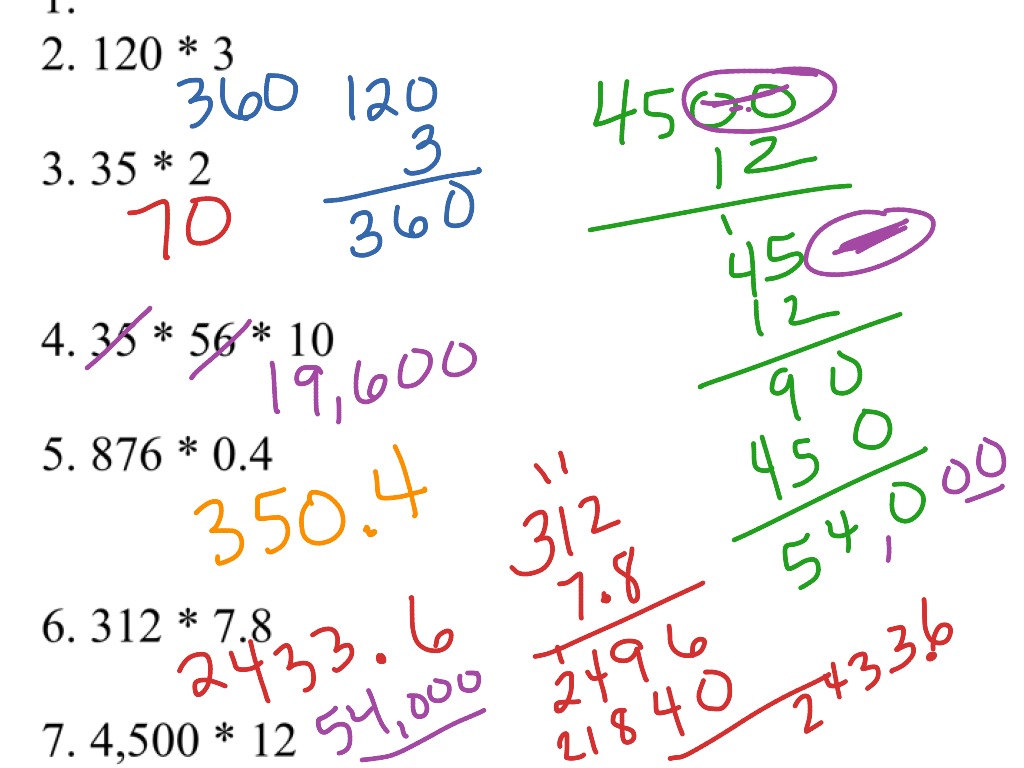 1.
2. 120 * 3
360
120
3
360
3. 35 * 2
70
4. 35 * 56 * 10
19,600
5. 876 * 0.4
350.4
6. 312 * 7.8
2433.6
7. 4,500 * 12
54,000
4500
12
1
45
12
90
450
54,000
11
312
7.8
1
2496
21840
2433.6